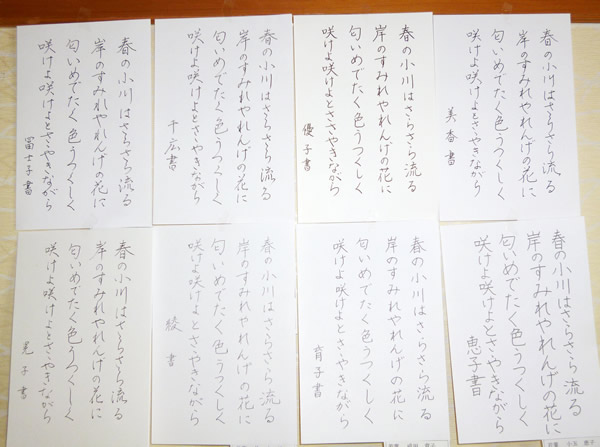 春の小川はさらさら流る
岸のすみれやれんげの花に
匂いめでたく色うつくしく
咲けよ咲けよとささやきながら
美香書
春の小川はさらさら流る
岸のすみれやれんげの花に
匂いめでたく色うつくしく
咲けよ咲けよとささやきながら
優子書
春の小川はさらさら流る
岸のすみれやれんげの花に
匂いめでたく色うつくしく
咲けよ咲けよとささやきながら
千広書
春の小川はさらさら流る
岸のすみれやれんげの花に
匂いめでたく色うつくしく
咲けよ咲けよとささやきながら
冨士子書
春の小川はさらさら流る
岸のすみれやれんげの花に
匂いめでたく色うつくしく
咲けよ咲けよとささやきながら
恵子書
春の小川はさらさら流る
岸のすみれやれんげの花に
匂いめでたく色うつくしく
咲けよ咲けよとささやきながら
育子書
春の小川はさらさら流る
岸のすみれやれんげの花に
匂いめでたく色うつくしく
咲けよ咲けよとささやきながら
綾書
春の小川はさらさら流る
岸のすみれやれんげの花に
匂いめでたく色うつくしく
咲けよ咲けよとささやきながら